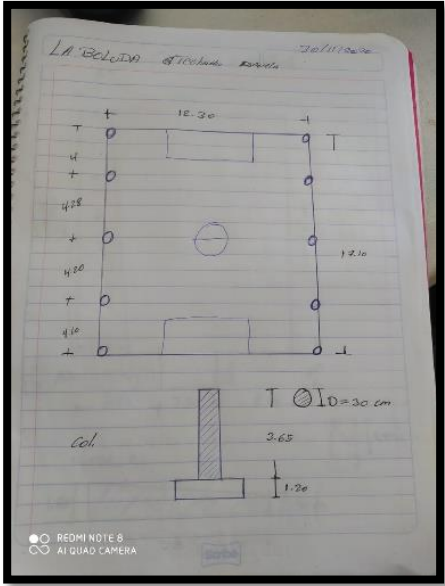 LA BOLUDA
30/11/2020
12.30
4
4.28
4.20
17.10
4.10
D=30 cm
Col.
3.65
1.20
REDMI NOTE 8
AI QUAD CAMERA
Scribe